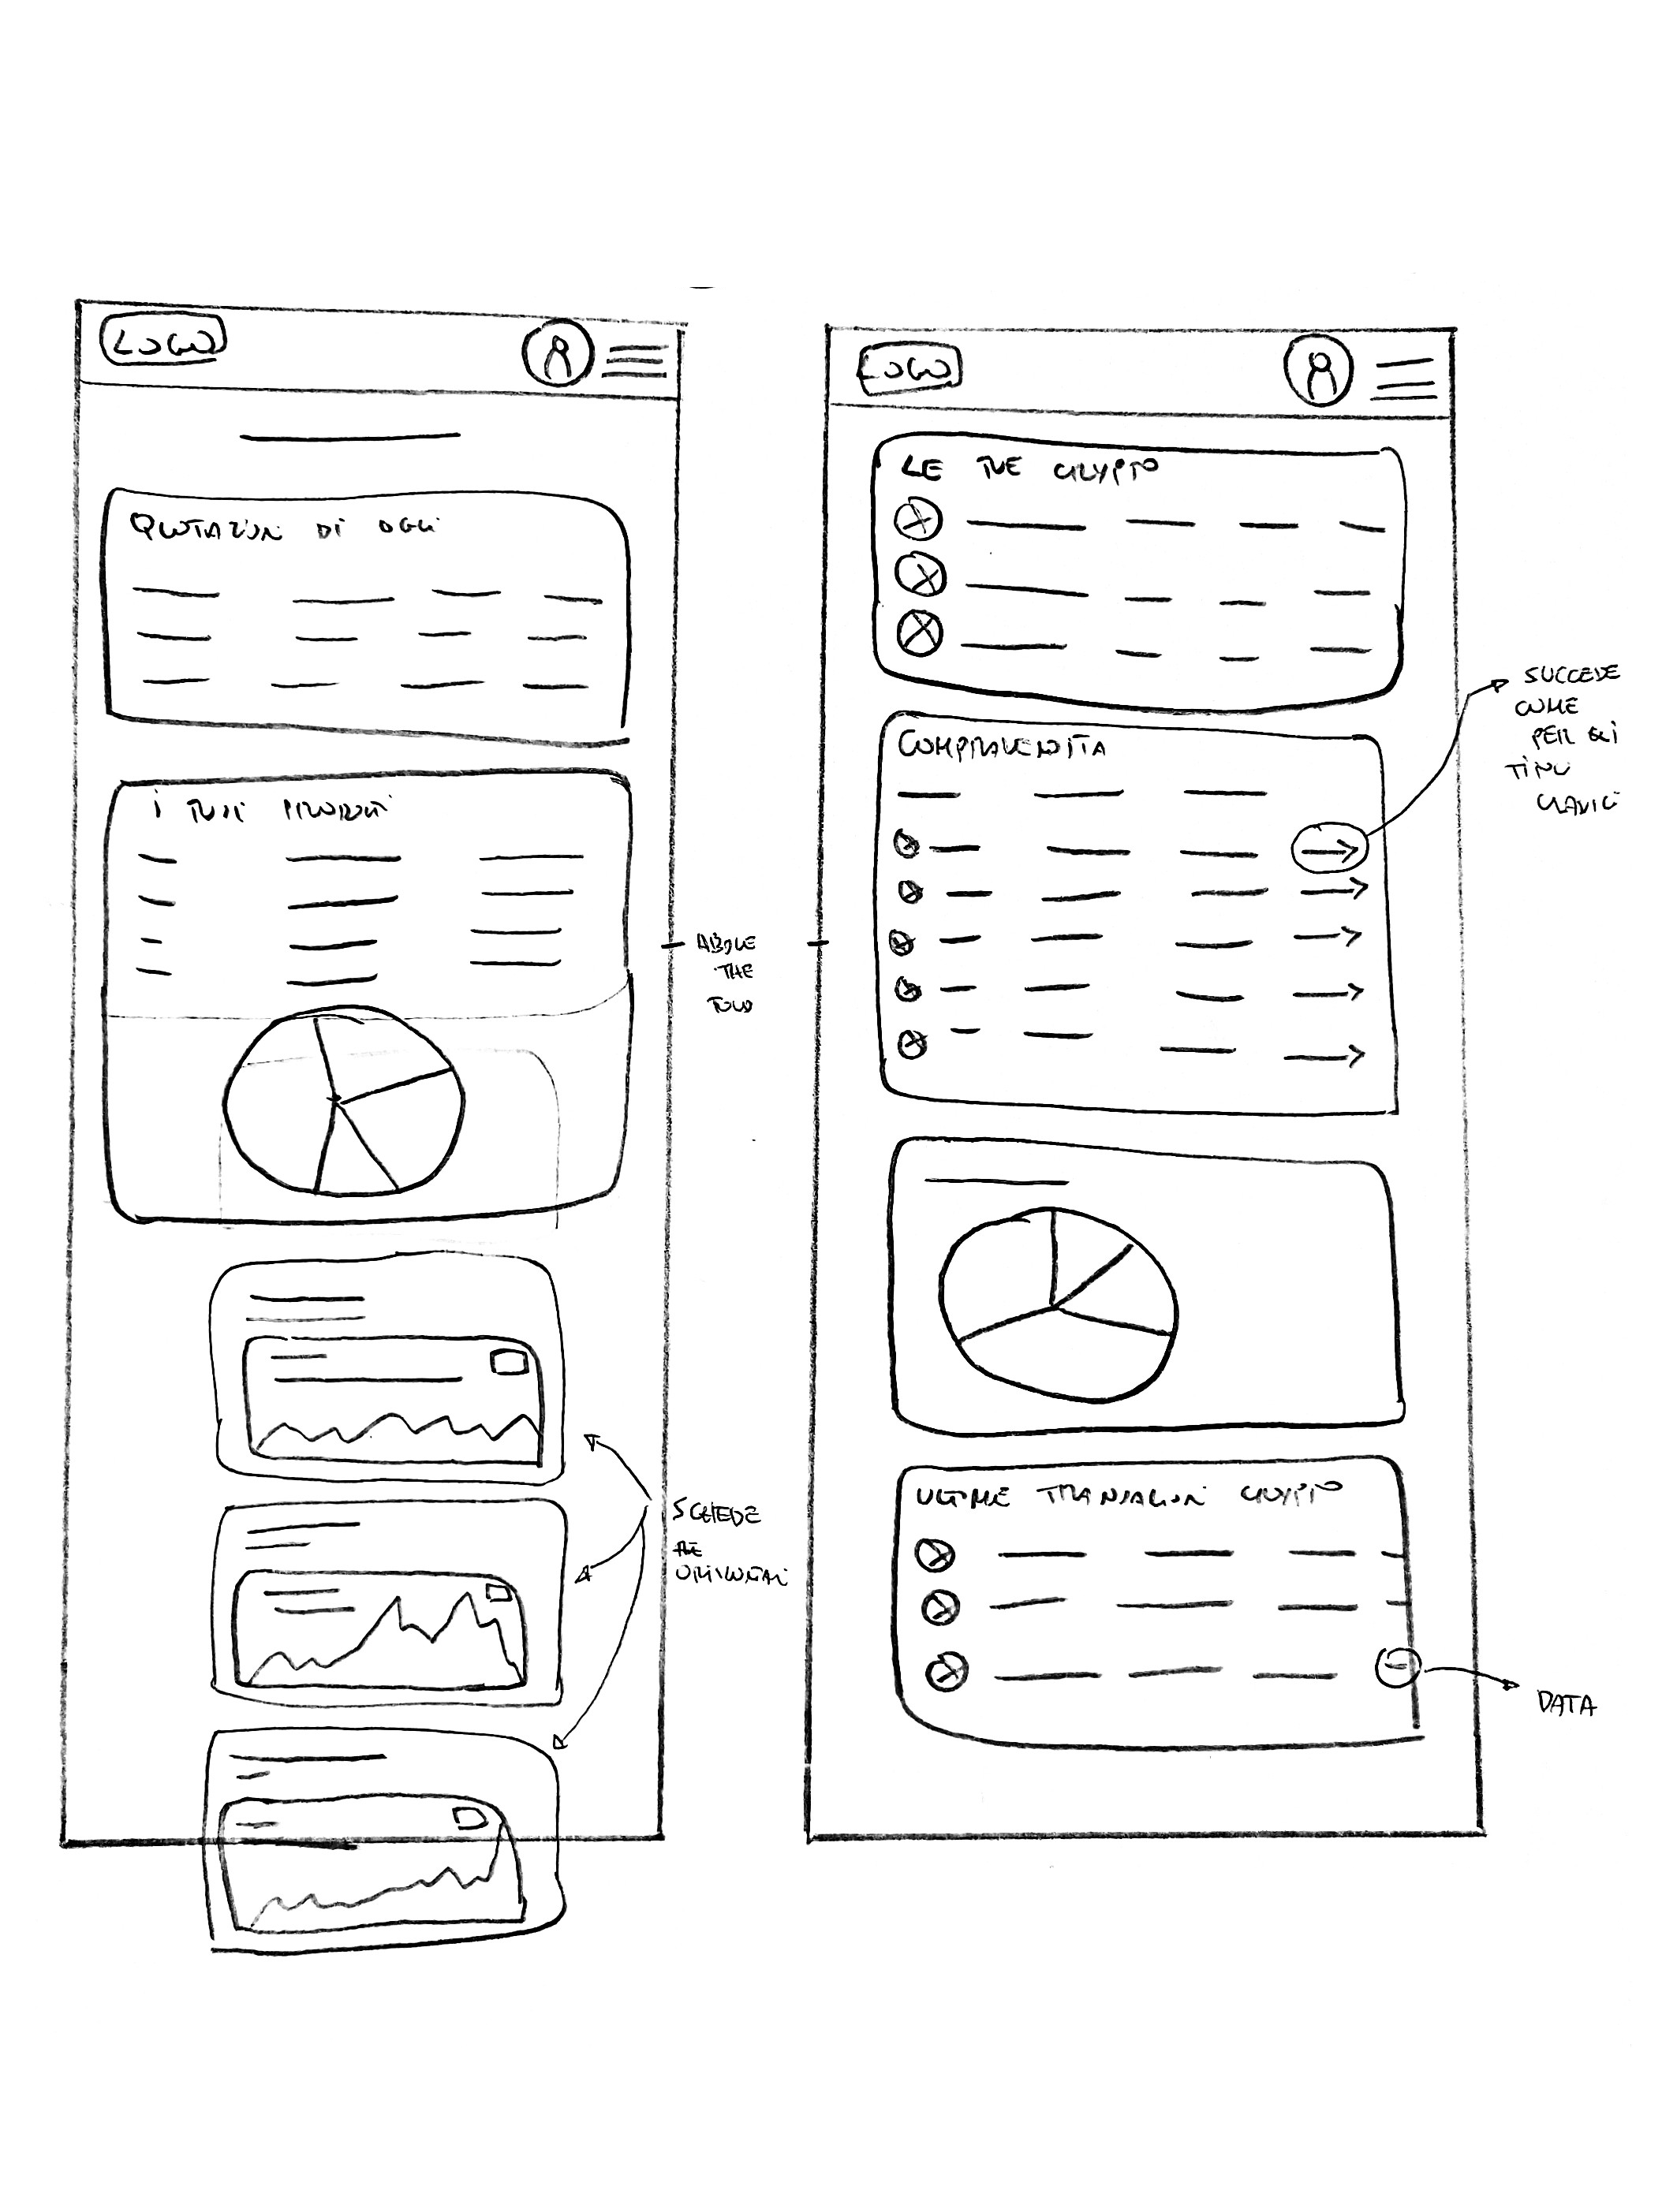 LOGO
QUOTAZIONI DI OGGI
I TUOI PRODOTTI
ABOVE
THE
FOLD
SCHEDE
ORIZZONTALI
LOGO
LE TUE CRYPTO
COMPRAVENDITA
SUCCEDE
COME
PER GLI
ULTIME TRANSAZIONI CRYPTO
DATA